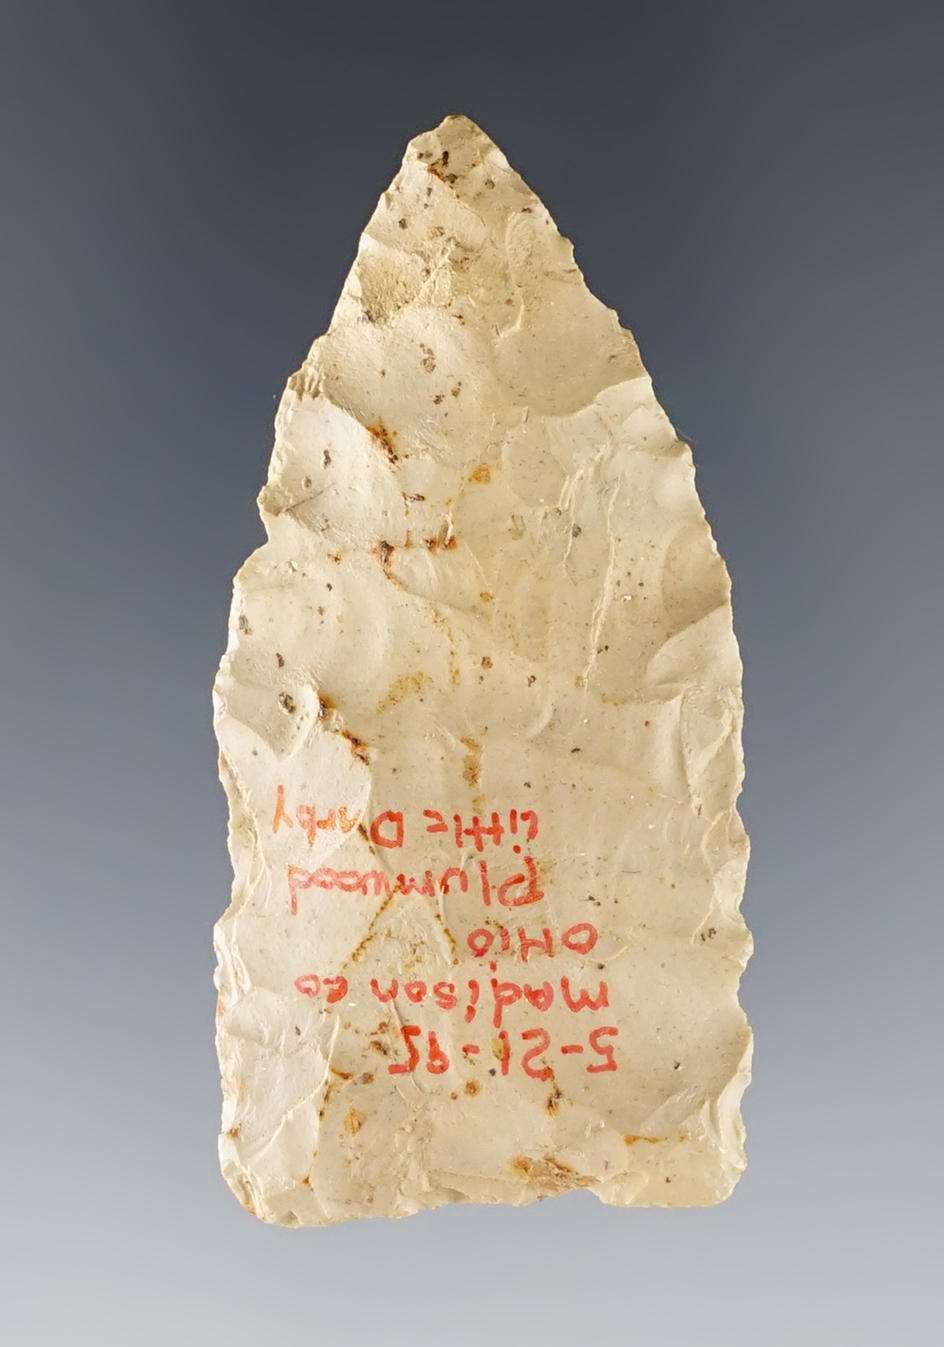 5-21-95
Madison co
OHIO
Plumwood
Little Darby